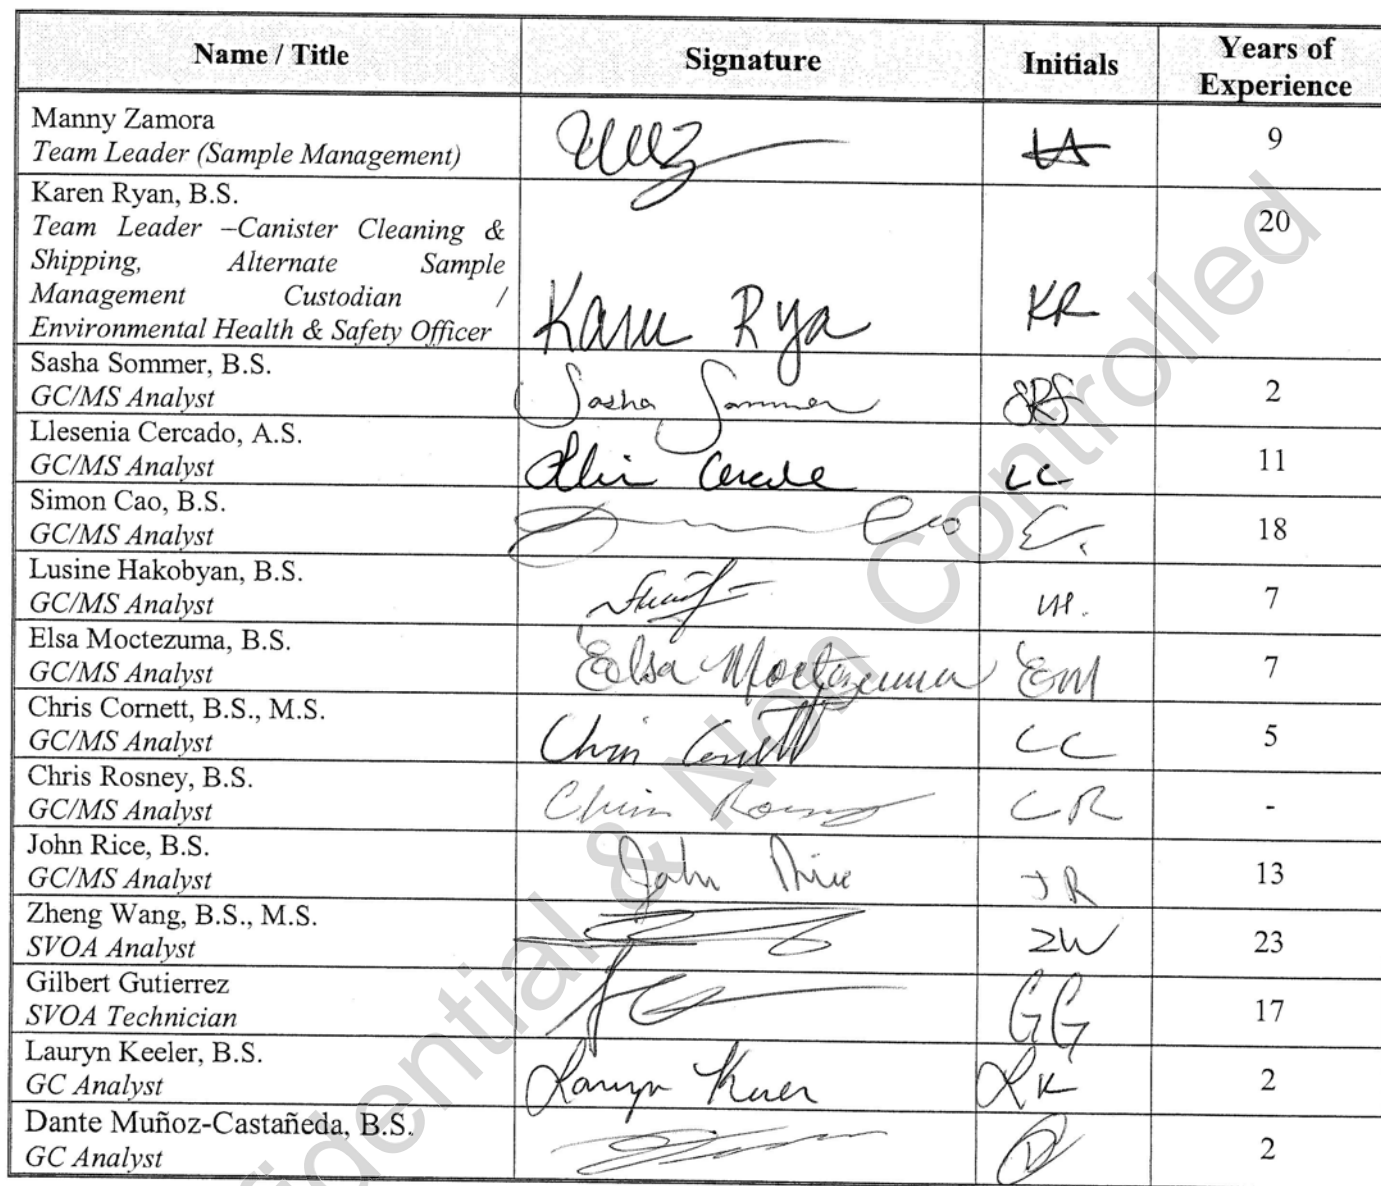 Name / Title Signature Initials Years of Experience
Manny Zamora 9
Team Leader (Sample Management)
Karen Ryan, B.S. 20
Team Leader –Canister Cleaning &
Shipping, Alternate Sample
Management Custodian /
Environmental Health & Safety Officer Karen Ryan KR
Sasha Sommer, B.S.
GC/MS Analyst Sasha Sommer SRS 2
Llesenia Cercado, A.S.
GC/MS Analyst LC 11
Simon Cao, B.S.
GC/MS Analyst 18
Lusine Hakobyan, B.S.
GC/MS Analyst 7
Elsa Moctezuma, B.S.
GC/MS Analyst Elsa Moctezuma EM 7
Chris Cornett, B.S., M.S.
GC/MS Analyst Chris Cornett CC 5
Chris Rosney, B.S.
GC/MS Analyst Chris Rosney CR -
John Rice, B.S.
GC/MS Analyst John Rice JR 13
Zheng Wang, B.S., M.S.
SVOA Analyst ZW 23
Gilbert Gutierrez
SVOA Technician GG 17
Lauryn Keeler, B.S.
GC Analyst Lauryn Keeler LK 2
Dante Muñoz-Castañeda, B.S.
GC Analyst 2
fidential & Non Controlled